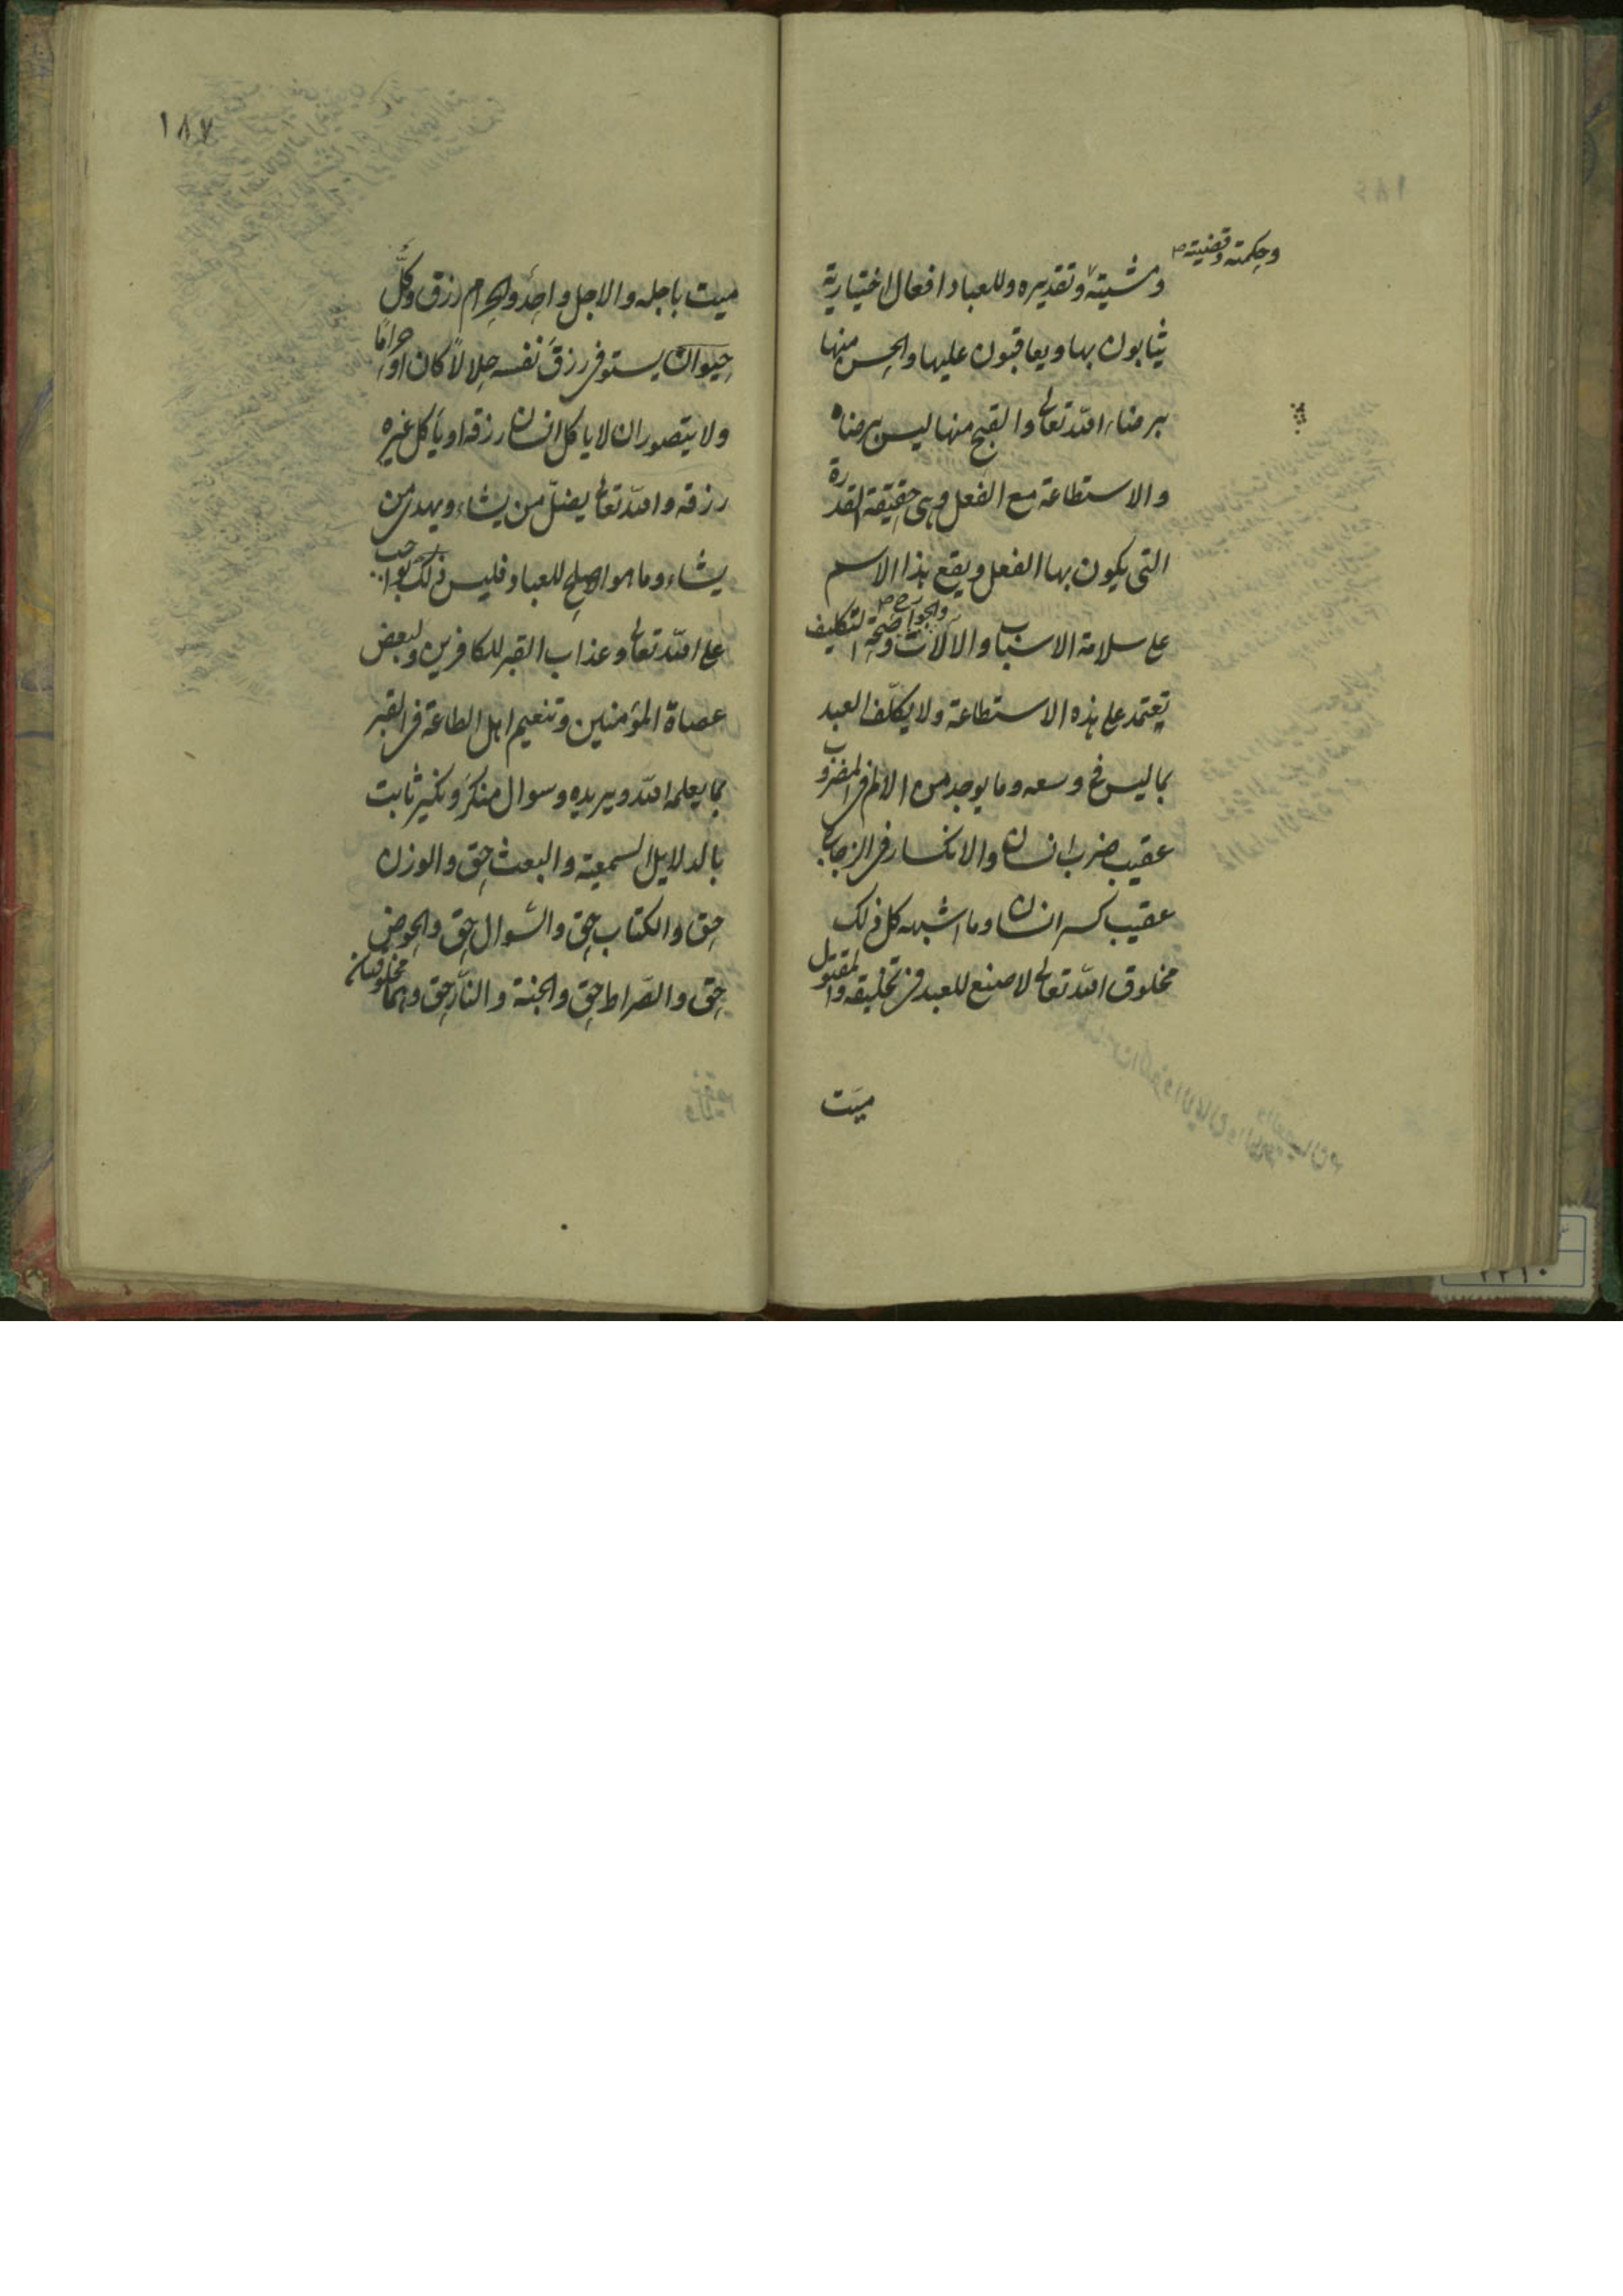 وحكمته وقضيته صح
ومشيته وتقديره وللعباد افعال اختيارية
يثابون بها ويعاقبون عليها والحسن منها
برضاء الله تعالى والقبح منها ليس برضاه
والاستطاعة مع الفعل وهى حقيقة القدرة
التى يكون بها الفعل ويقع هذا الاسم
على سلامة الاسباب والآلات والجوارح وصحة التكليف
يعتمد على هذه الاستطاعة ولا يكلّف العبد
بما ليس فى وسعه وما يوجد من الالم فى المضروب
عقيب ضرب انسان والانكسار فى الزجاج
عقيب كسر انسان وما اشبهه كل ذلك
مخلوق الله تعالى لا صنع للعبد فى تخليقه والمقتول
ميّت
١٨٧
ميت باجله والاجل واحد والحرام رزق وكلّ
حيوان يستوفى رزق نفسه حلالاً كان او حرامًا
ولا يتصور ان لا ياكل انسان رزقه او يأكل غيره
رزقه والله تعالى يضلّ من يشاء ويهدى من
يشاء وما هو الاصلح للعباد فليس ذلك بواجب
على الله تعالى وعذاب القبر للكافرين ولبعض
عصاة المؤمنين وتنعيم اهل الطاعة فى القبر
بما يعلمه الله ويريده وسوال منكر ونكير ثابت
بالدلايل السمعية والبعث حق والوزن
حق والكتاب حق والسّوال حق والحوض
حق والصّراط حق والجنة والنّار حق وهما مخلوقتان
٢٢١٠